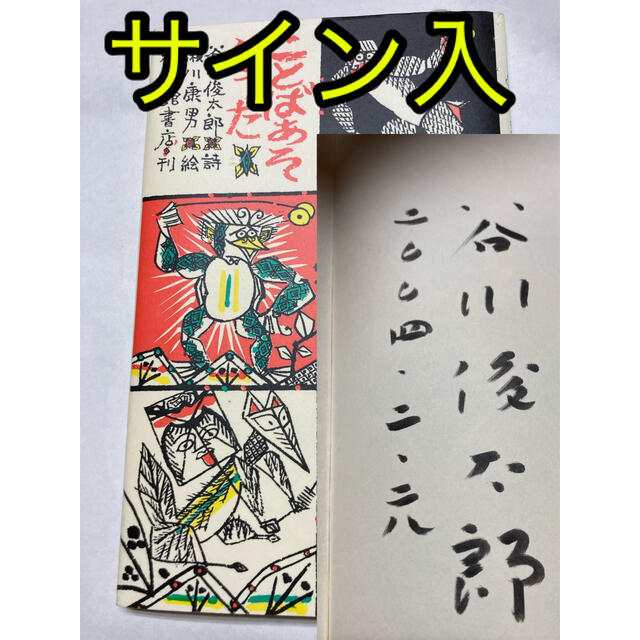 サイン入
ことばあそ
うた
俊太郎 詩
瀬川康男 絵
館書店・刊
谷川俊太郎
二〇〇四・二・二八